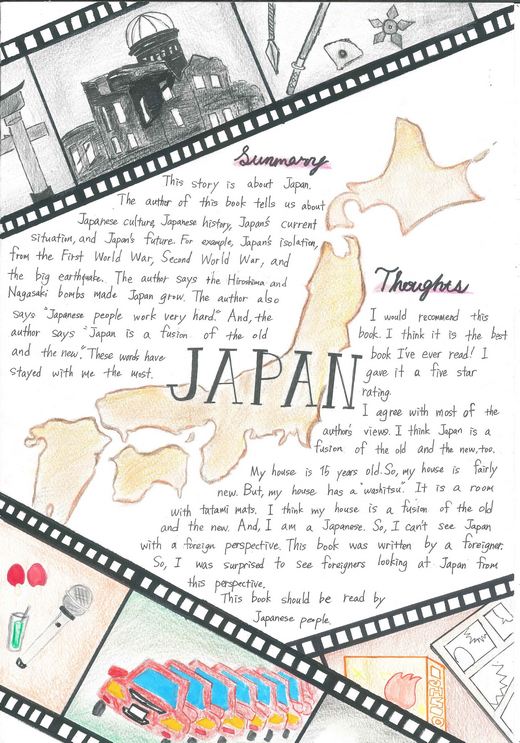 Summary
This story is about Japan.
The author of this book tells us about
Japanese culture, Japanese history, Japan's current
situation, and Japan's future. For example, Japan's isolation,
from the First World War, Second World War, and
the big earthquake. The author says the Hiroshima and
Nagasaki bombs made Japan grow. The author also
says "Japanese people work very hard." And, the
author says "Japan is a fusion of the old
and the new." These words have
stayed with me the most.
JAPAN
Thoughts
I would recommend this
book. I think it is the best
book I've ever read! I
gave it a five star
rating.
I agree with most of the
author's views. I think Japan is a
fusion of the old and the new, too.
My house is 15 years old. So, my house is fairly
new. But, my house has a "washitsu". It is a room
with tatami mats. I think my house is a fusion of the old
and the new. And, I am a Japanese. So, I can't see Japan
with a foreign perspective. This book was written by a foreigner.
So, I was surprised to see foreigners looking at Japan from
this perspective.
This book should be read by
Japanese people.